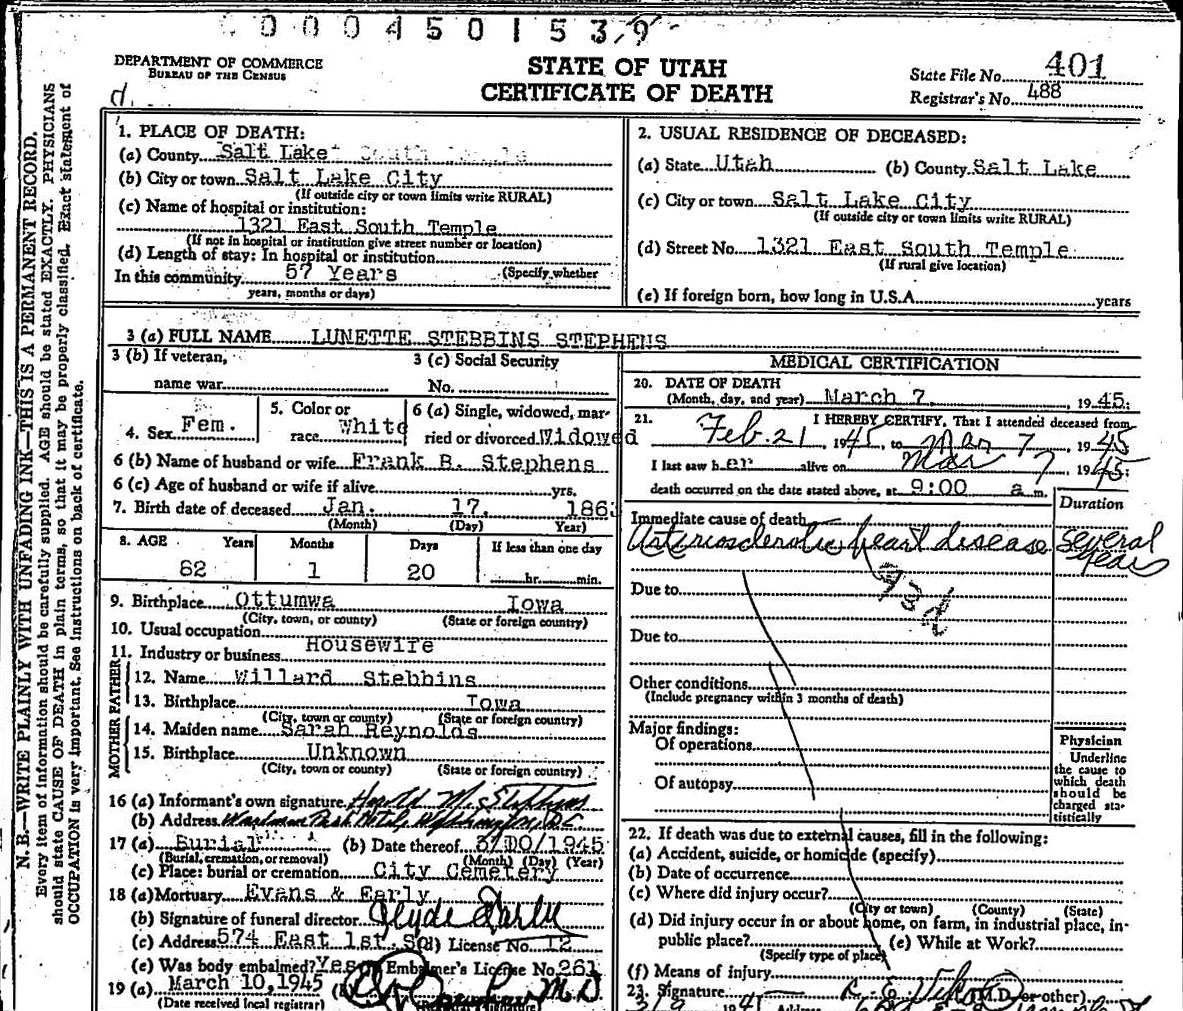 0 0 0 4 5 0 1 5 3 9
DEPARTMENT OF COMMERCE
BUREAU OF THE CENSUS
STATE OF UTAH
CERTIFICATE OF DEATH
State File No. 401
Registrar's No. 488
d.
N. B.—WRITE PLAINLY WITH UNFADING INK—THIS IS A PERMANENT RECORD.
Every item of information should be carefully supplied. AGE should be stated EXACTLY. PHYSICIANS
should state CAUSE OF DEATH in plain terms, so that it may be properly classified. Exact statement of
OCCUPATION is very important. See instructions on back of certificate.
1. PLACE OF DEATH:
(a) County Salt Lake
(b) City or town Salt Lake City
(If outside city or town limits write RURAL)
(c) Name of hospital or institution:
1321 East South Temple
(If not in hospital or institution give street number or location)
(d) Length of stay: In hospital or institution
In this community 57 Years (Specify whether
years, months or days)
2. USUAL RESIDENCE OF DECEASED:
(a) State Utah (b) County Salt Lake
(c) City or town Salt Lake City
(If outside city or town limits write RURAL)
(d) Street No. 1321 East South Temple
(If rural give location)
(e) If foreign born, how long in U.S.A. years
3 (a) FULL NAME LUNETTE STEBBINS STEPHENS
3 (b) If veteran, 3 (c) Social Security
name war No.
4. Sex Fem. 5. Color or race White 6 (a) Single, widowed, married or divorced Widowed
6 (b) Name of husband or wife Frank B. Stephens
6 (c) Age of husband or wife if alive yrs.
7. Birth date of deceased Jan. 17, 186
(Month) (Day) Year)
8. AGE Years Months Days If less than one day
82 1 20 hr. min.
9. Birthplace Ottumwa Iowa
(City, town, or county) (State or foreign country)
10. Usual occupation Housewife
11. Industry or business
FATHER
12. Name Willard Stebbins
13. Birthplace Iowa
(City, town or county) (State or foreign country)
MOTHER
14. Maiden name Sarah Reynolds
15. Birthplace Unknown
(City, town or county) (State or foreign country)
16 (a) Informant's own signature Harold M. Stephens
(b) Address Wardman Park Hotel, Washington, D.C.
17 (a) Burial (b) Date thereof 3/ /1945
(Burial, cremation, or removal) (Month) (Day) (Year)
(c) Place: burial or cremation City Cemetery
18 (a) Mortuary Evans & Early
(b) Signature of funeral director Clyde Early
(c) Address 574 East 1st. So. (d) License No. 12
(e) Was body embalmed? Yes Embalmer's License No. 261
19 (a) March 10, 1945 (b) M. D.
(Date received local registrar)
MEDICAL CERTIFICATION
20. DATE OF DEATH
(Month, day, and year) March 7, 1945.
21. I HEREBY CERTIFY, That I attended deceased from
Feb. 21 1945, to Mar 7, 1945
I last saw her alive on Mar 7, 1945
death occurred on the date stated above, at 9:00 a m.
Duration
Immediate cause of death
Arteriosclerotic heart disease several years
93d
Due to
Due to
Other conditions
(Include pregnancy within 3 months of death)
Major findings:
Of operations
Of autopsy
Physician
Underline
the cause to
which death
should be
charged sta-
tistically
22. If death was due to external causes, fill in the following:
(a) Accident, suicide, or homicide (specify)
(b) Date of occurrence
(c) Where did injury occur?
(City or town) (County) (State)
(d) Did injury occur in or about home, on farm, in industrial place, in-
public place? (e) While at Work?
(Specify type of place)
(f) Means of injury
23. Signature (M.D. or other)